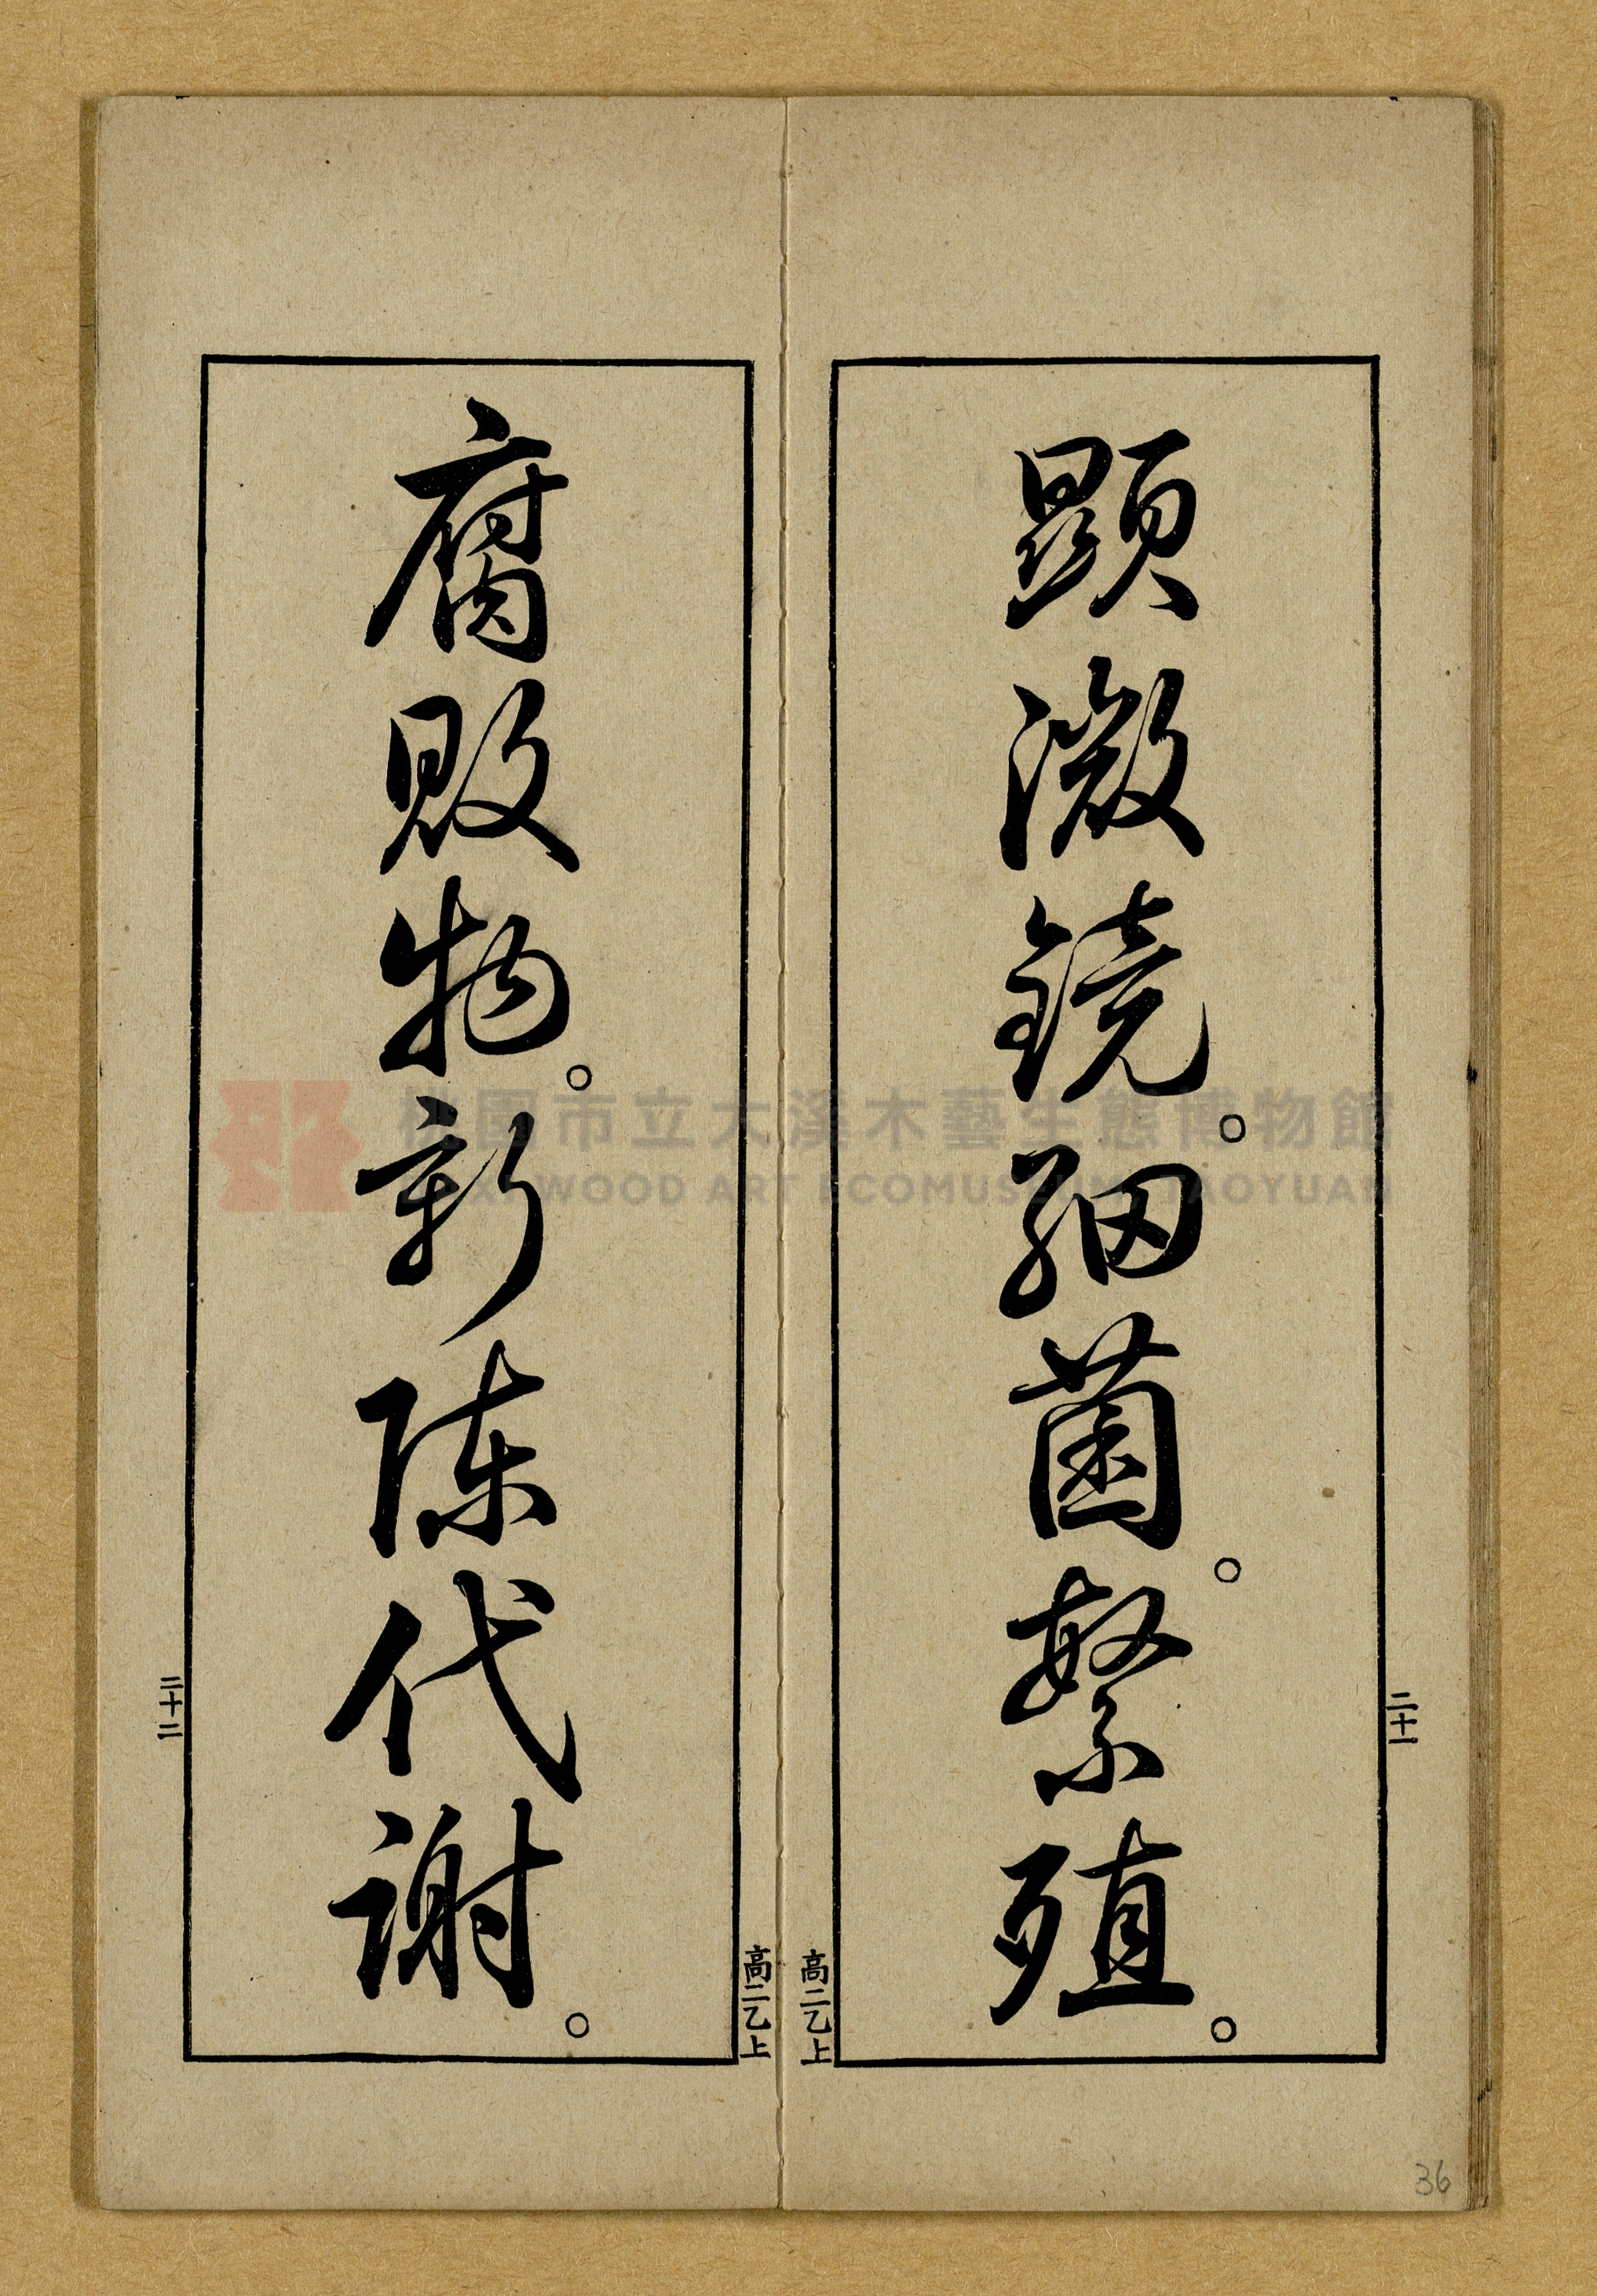 顕微鏡。細菌。繁殖。
二十一
高二乙上
腐敗物。新陳代謝。
二十二
高二乙上
桃園市立大溪木藝生態博物館
DAXI WOOD ART ECOMUSEUM, TAOYUAN
36